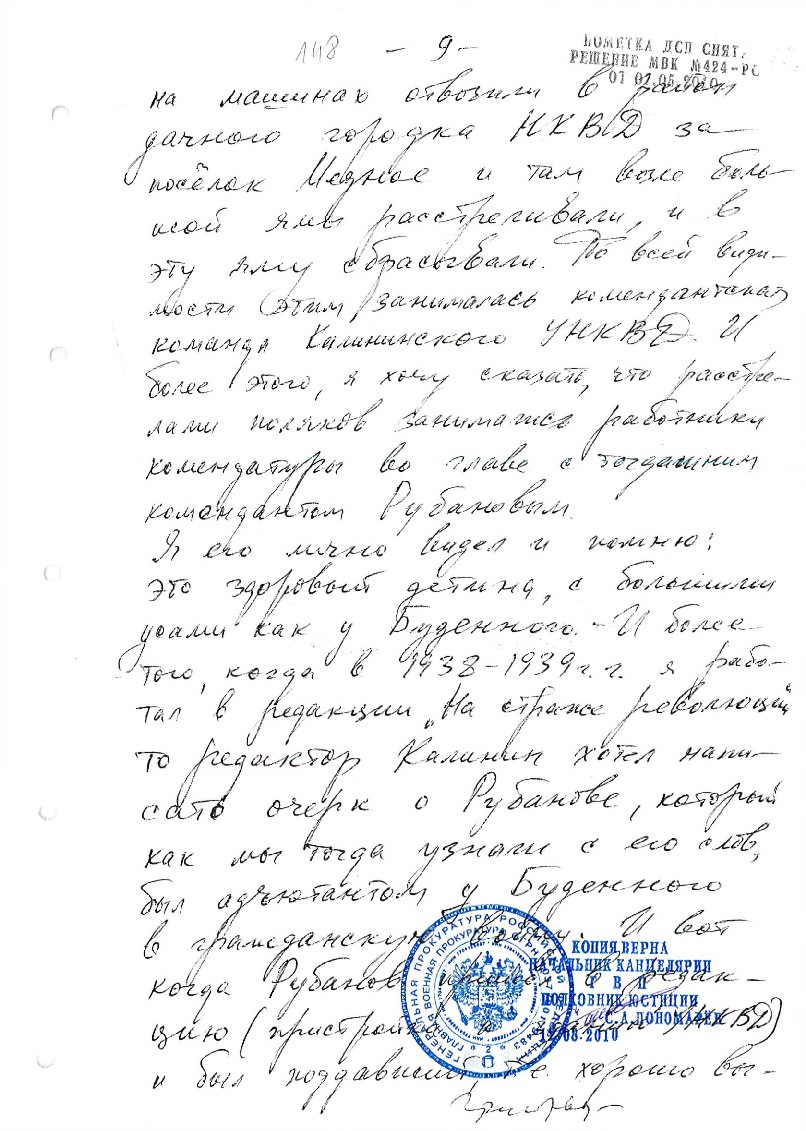 148 - 9 -
ПОМЕТКА ДСП СНЯТА
РЕШЕНИЕ МВК №424-РС
ОТ 02.05.2010
на машинах отвозили в район
дачного городка НКВД за
посёлок Медное и там возле боль-
шой ямы расстреливали, и в
эту яму сбрасывали. По всей види-
мости этим занималась комендантская
команда Калининского УНКВД. И
более этого, я хочу сказать, что расстре-
лами поляков занимались работники
комендатуры во главе с тогдашним
комендантом Рубановым.
Я его лично видел и помню:
это здоровый детина, с большими
усами как у Буденного. - И более
того, когда в 1938-1939 г.г. я рабо-
тал в редакции „На страже революции“
то редактор Калинин хотел напи-
сать очерк о Рубанове, который
как мы тогда узнали с его слов,
был адъютантом у Буденного
в гражданскую войну. И вот
когда Рубанов пришел в редак-
цию (пристройка к УНКВД)
и был поддавший, т.е. хорошо вы-
ГЕНЕРАЛЬНАЯ ПРОКУРАТУРА РОССИЙСКОЙ
ГЛАВНАЯ ВОЕННАЯ ПРОКУРАТУРА
КОПИЯ ВЕРНА
НАЧАЛЬНИК КАНЦЕЛЯРИИ
Г В П
ПОЛКОВНИК ЮСТИЦИИ
С.А.ПОНОМАРЕВ
.08.2010